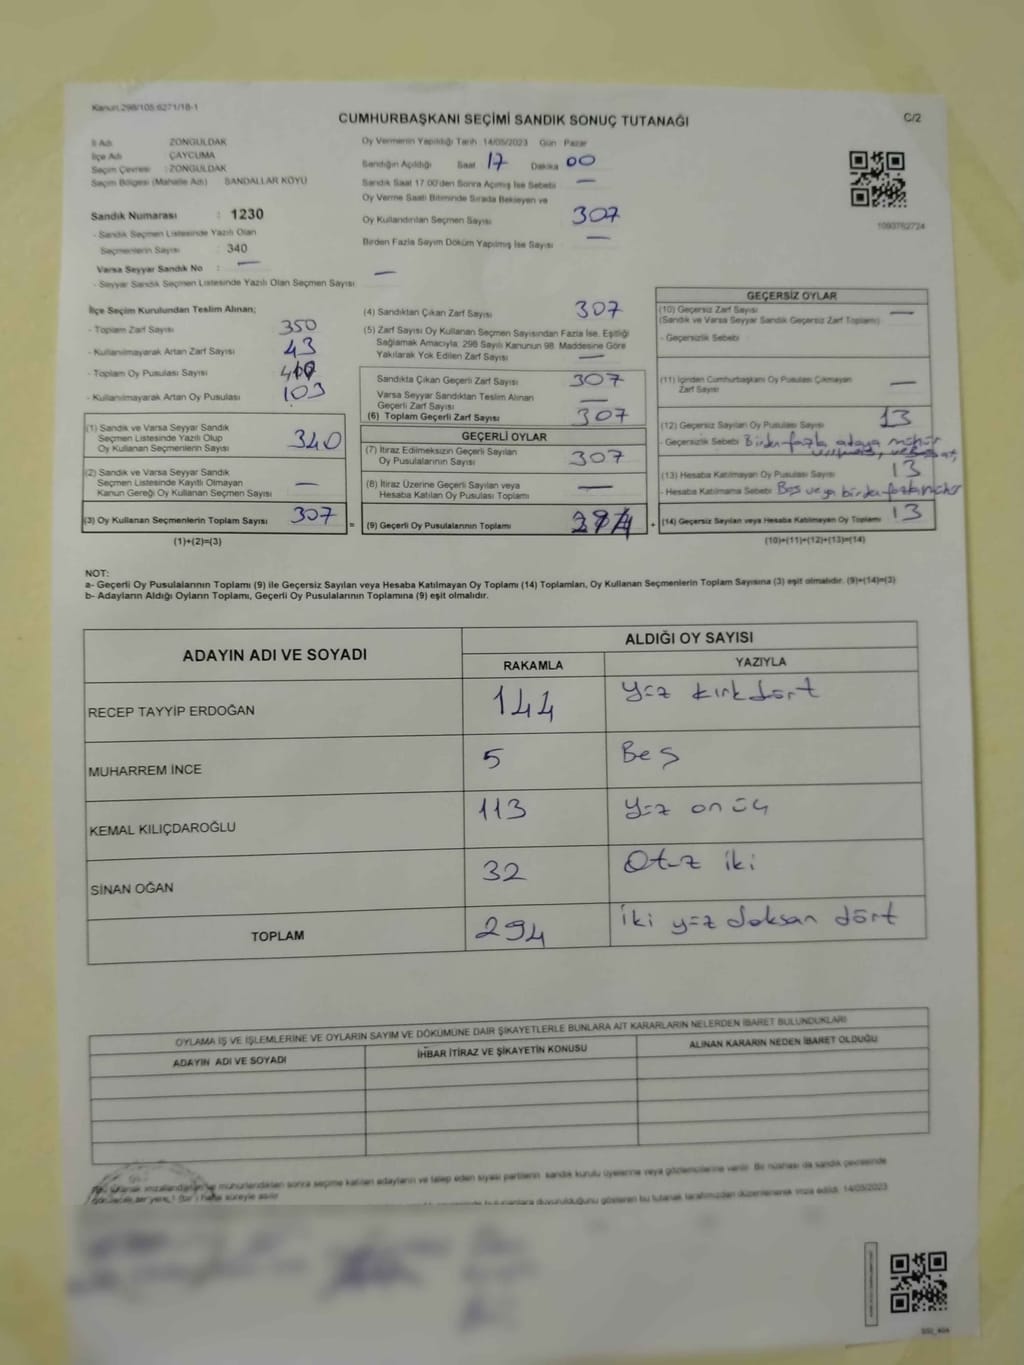 Kanun 298/105 6271/18-1
CUMHURBAŞKANI SEÇİMİ SANDIK SONUÇ TUTANAĞI
C/2
İl Adı ZONGULDAK
İlçe Adı ÇAYCUMA
Seçim Çevresi : ZONGULDAK
Seçim Bölgesi (Mahalle Adı) SANDALLAR KÖYÜ
Sandık Numarası : 1230
- Sandık Seçmen Listesinde Yazılı Olan
Seçmenlerin Sayısı : 340
Varsa Seyyar Sandık No : —
- Seyyar Sandık Seçmen Listesinde Yazılı Olan Seçmen Sayısı —
Oy Vermenin Yapıldığı Tarih 14/05/2023 Gün Pazar
Sandığın Açıldığı Saat 17 Dakika 00
Sandık Saat 17.00'den Sonra Açılmış İse Sebebi —
Oy Verme Saati Bitiminde Sırada Bekleyen ve
Oy Kullandırılan Seçmen Sayısı 307
Birden Fazla Sayım Döküm Yapılmış İse Sayısı —
1093762724
İlçe Seçim Kurulundan Teslim Alınan;
- Toplam Zarf Sayısı 350
- Kullanılmayarak Artan Zarf Sayısı 43
- Toplam Oy Pusulası Sayısı
- Kullanılmayarak Artan Oy Pusulası 103
(1) Sandık ve Varsa Seyyar Sandık
Seçmen Listesinde Yazılı Olup
Oy Kullanan Seçmenlerin Sayısı 340
(2) Sandık ve Varsa Seyyar Sandık
Seçmen Listesinde Kayıtlı Olmayan
Kanun Gereği Oy Kullanan Seçmen Sayısı —
(3) Oy Kullanan Seçmenlerin Toplam Sayısı 307
(1)+(2)=(3)
(4) Sandıktan Çıkan Zarf Sayısı 307
(5) Zarf Sayısı Oy Kullanan Seçmen Sayısından Fazla İse, Eşitliği
Sağlamak Amacıyla, 298 Sayılı Kanunun 98. Maddesine Göre
Yakılarak Yok Edilen Zarf Sayısı —
Sandıkta Çıkan Geçerli Zarf Sayısı 307
Varsa Seyyar Sandıktan Teslim Alınan
Geçerli Zarf Sayısı —
(6) Toplam Geçerli Zarf Sayısı 307
GEÇERLİ OYLAR
(7) İtiraz Edilmeksizin Geçerli Sayılan
Oy Pusulalarının Sayısı 307
(8) İtiraz Üzerine Geçerli Sayılan veya
Hesaba Katılan Oy Pusulası Toplamı —
= (9) Geçerli Oy Pusulalarının Toplamı
GEÇERSİZ OYLAR
(10) Geçersiz Zarf Sayısı —
(Sandık ve Varsa Seyyar Sandık Geçersiz Zarf Toplamı)
- Geçersizlik Sebebi
(11) İçinden Cumhurbaşkanı Oy Pusulası Çıkmayan
Zarf Sayısı —
(12) Geçersiz Sayılan Oy Pusulası Sayısı 13
- Geçersizlik Sebebi Birden fazla adaya mühür
(13) Hesaba Katılmayan Oy Pusulası Sayısı 13
- Hesaba Katılmama Sebebi Boş veya birden fazla mühür
+ (14) Geçersiz Sayılan veya Hesaba Katılmayan Oy Toplamı 13
(10)+(11)+(12)+(13)=(14)
NOT:
a- Geçerli Oy Pusulalarının Toplamı (9) ile Geçersiz Sayılan veya Hesaba Katılmayan Oy Toplamı (14) Toplamları, Oy Kullanan Seçmenlerin Toplam Sayısına (3) eşit olmalıdır. (9)+(14)=(3)
b- Adayların Aldığı Oyların Toplamı, Geçerli Oy Pusulalarının Toplamına (9) eşit olmalıdır.
ADAYIN ADI VE SOYADI
ALDIĞI OY SAYISI
RAKAMLA YAZIYLA
RECEP TAYYİP ERDOĞAN 144 yüz kırkdört
MUHARREM İNCE 5 Beş
KEMAL KILIÇDAROĞLU 113 yüz onüç
SİNAN OĞAN 32 Otuz iki
TOPLAM 294 iki yüz doksan dört
OYLAMA İŞ VE İŞLEMLERİNE VE OYLARIN SAYIM VE DÖKÜMÜNE DAİR ŞİKAYETLERLE BUNLARA AİT KARARLARIN NELERDEN İBARET BULUNDUKLARI
ADAYIN ADI VE SOYADI İHBAR İTİRAZ VE ŞİKAYETİN KONUSU ALINAN KARARIN NEDEN İBARET OLDUĞU
Bu tutanak imzalandıktan ve mühürlendikten sonra seçime katılan adayların ve talep eden siyasi partilerin sandık kurulu üyelerine veya gözlemcilerine verilir. Bir nüshası da sandık çevresinde
görülecek bir yere 1 (bir) hafta süreyle asılır.
duyurulduğunu gösteren bu tutanak tarafımızdan düzenlenerek imza edildi. 14/05/2023